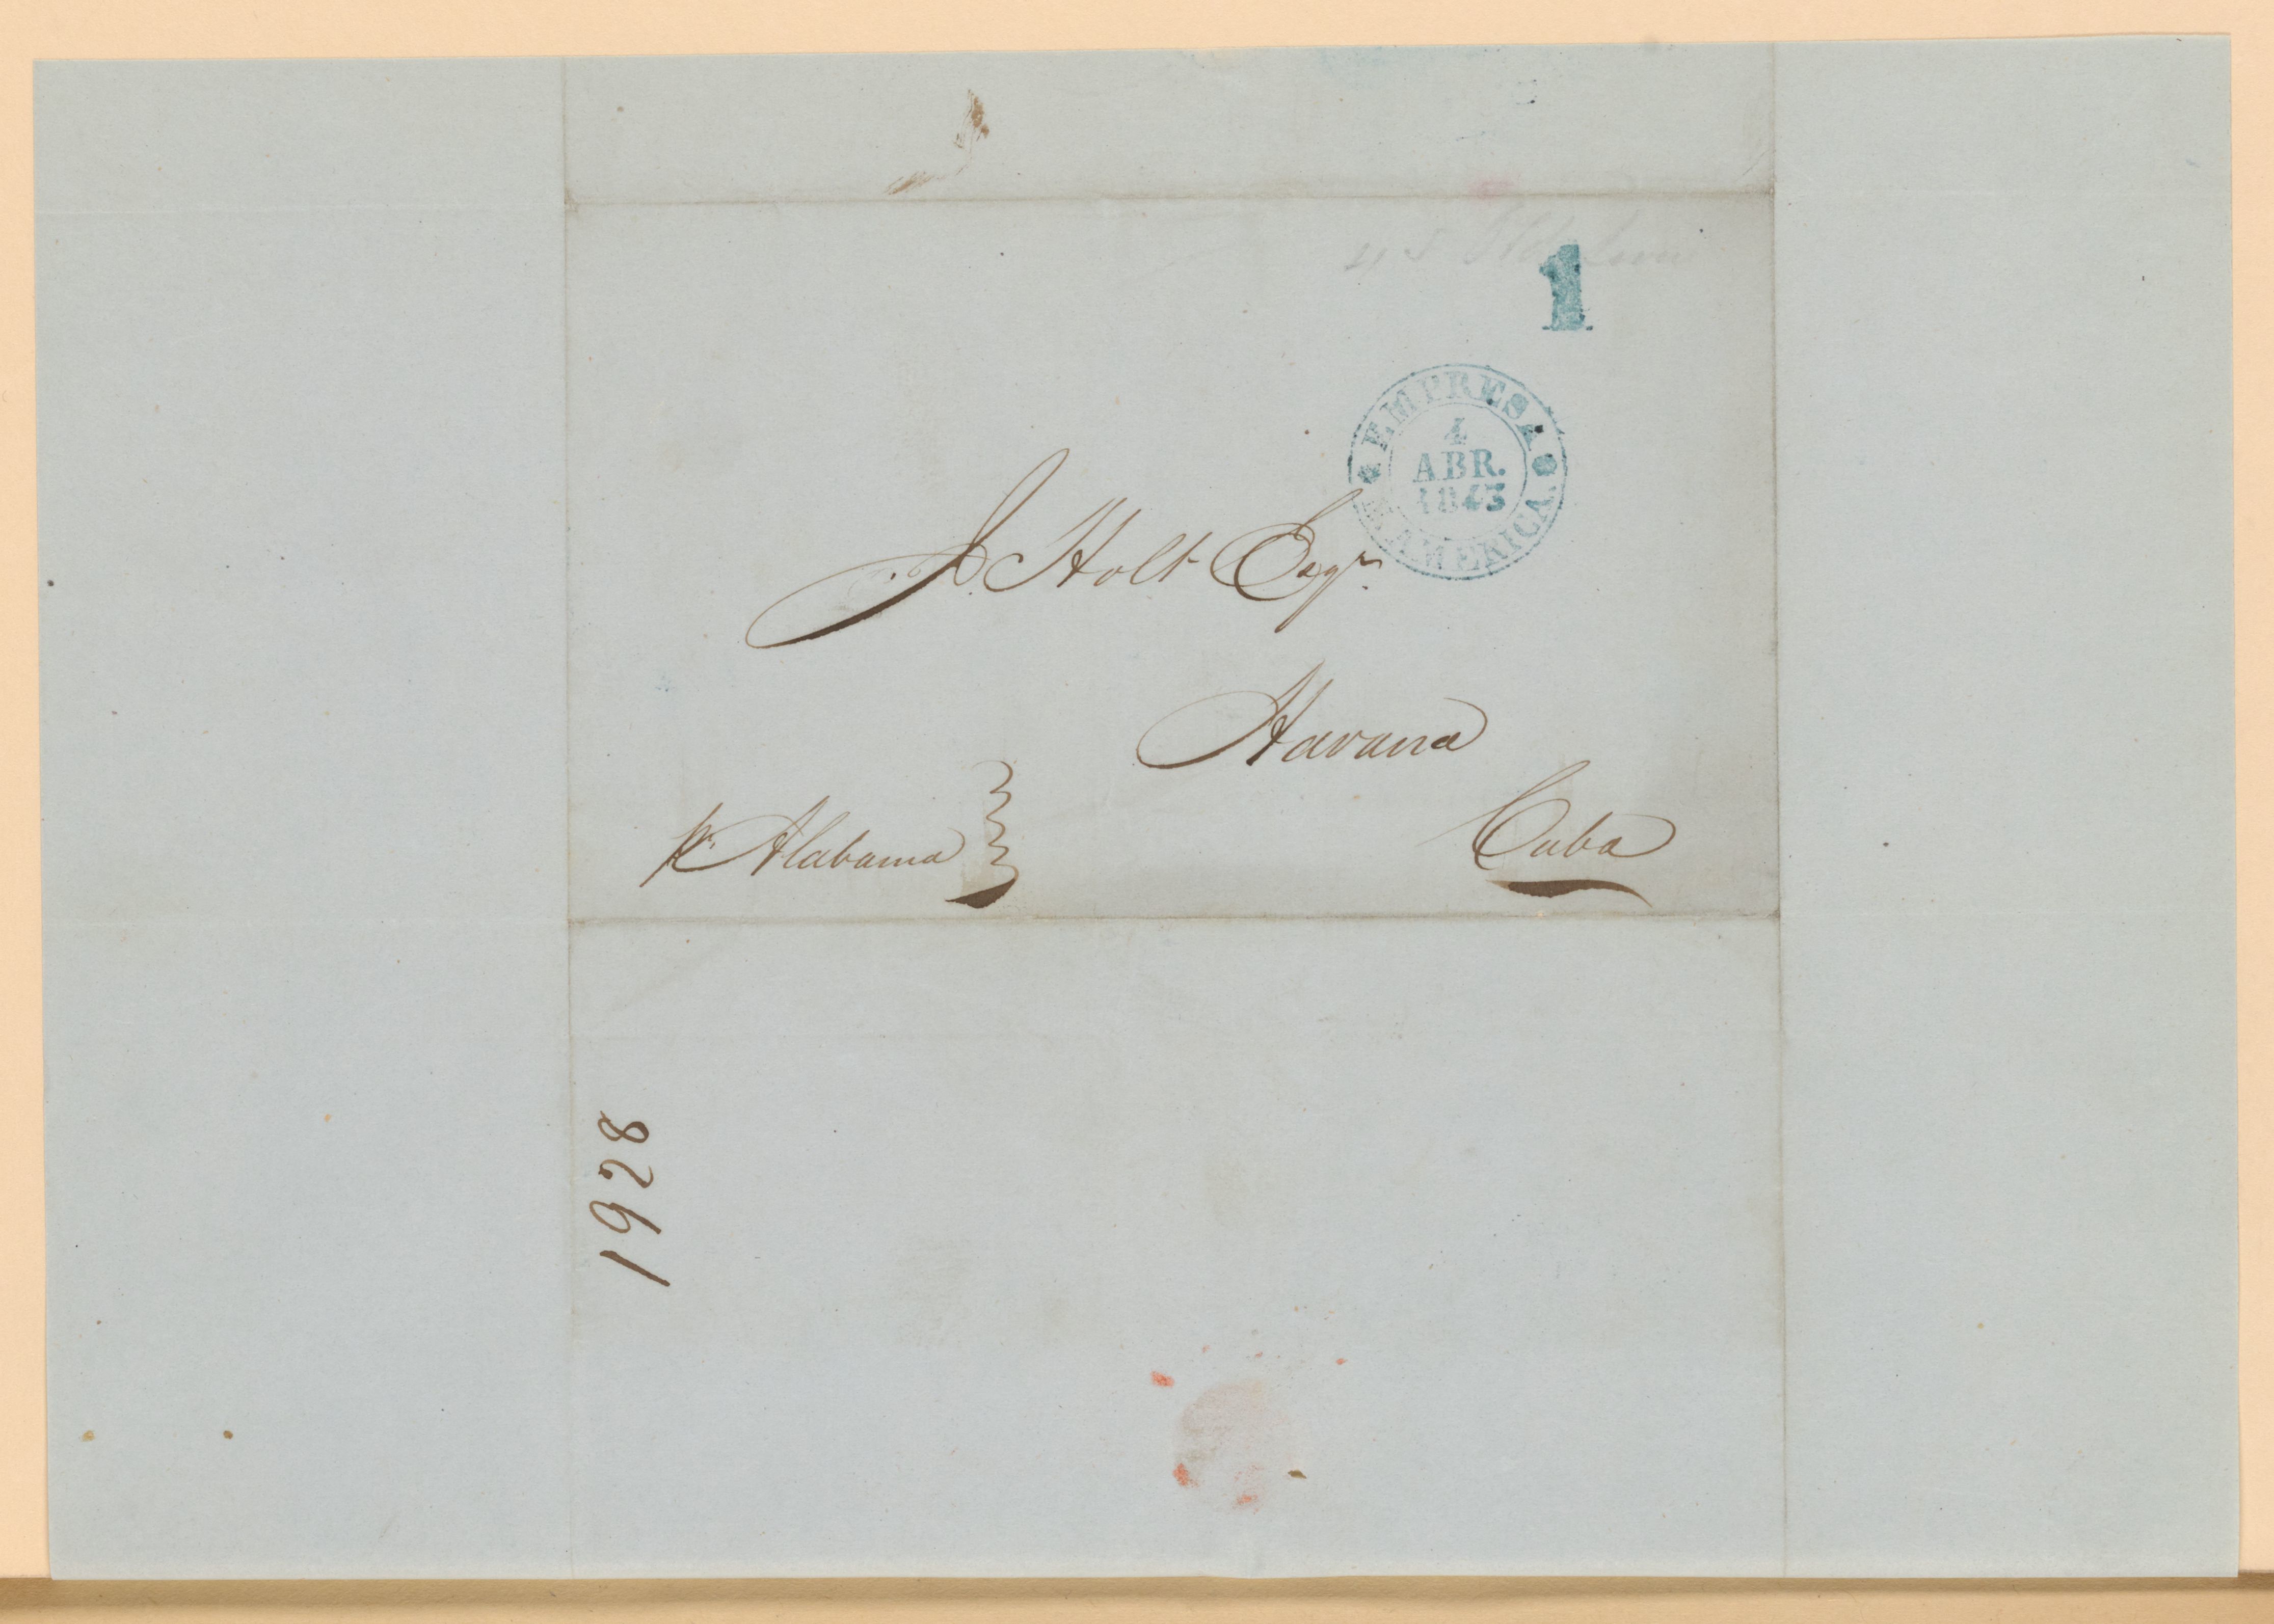 1
EMPRESA
4
ABR.
1843
N. AMERICA.
J. Holt Esqr.
Havana
pr. Alabama
Cuba
1928